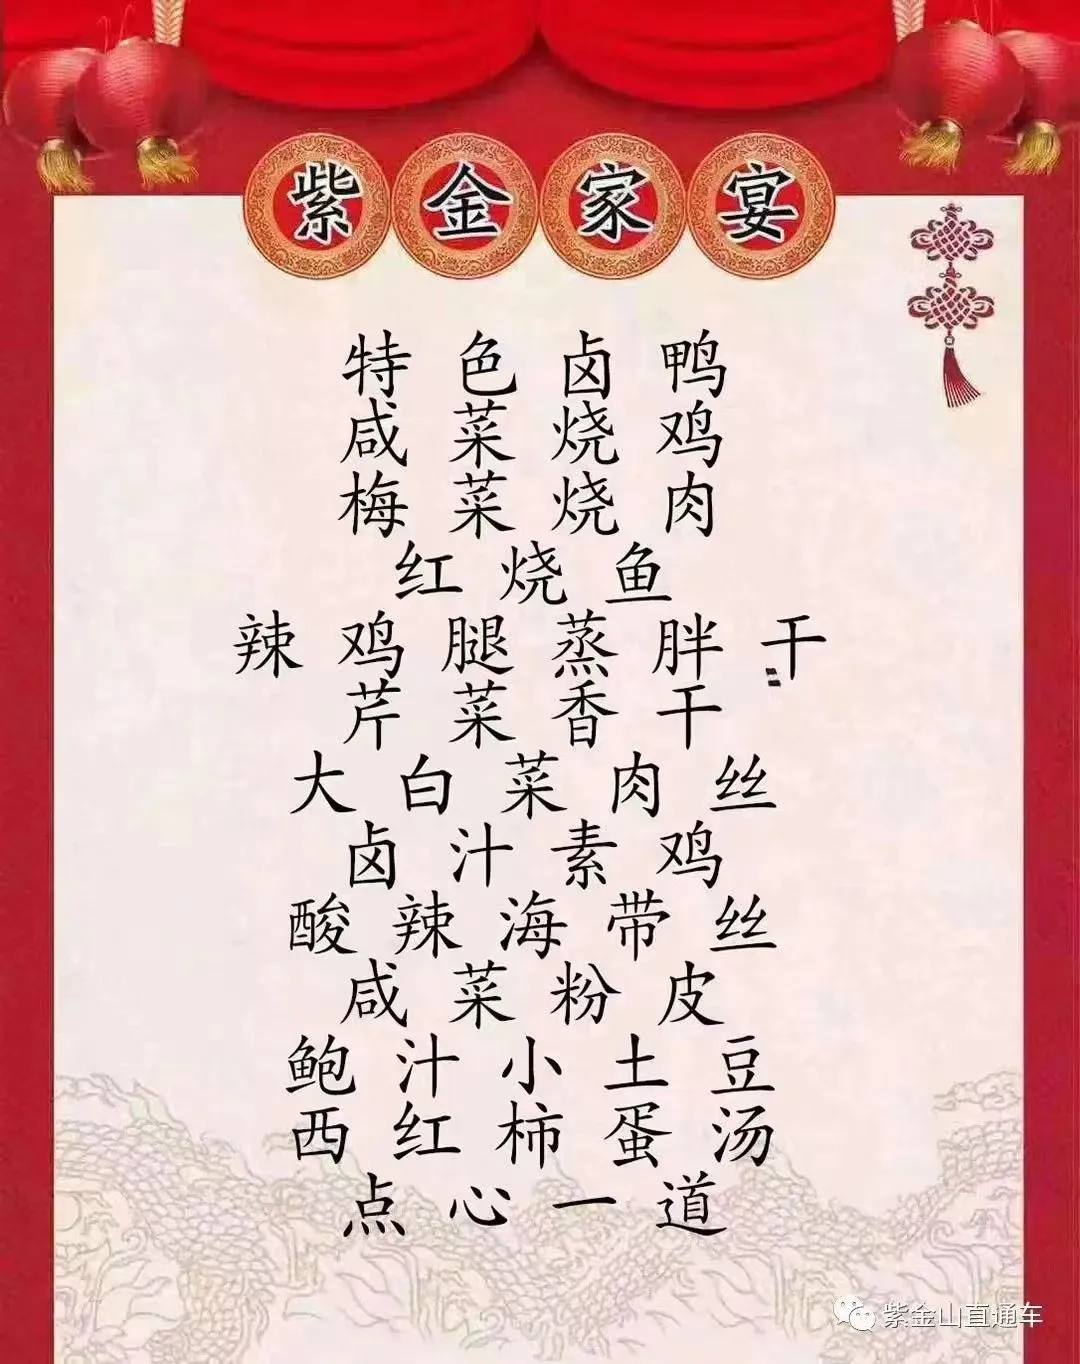 紫金家宴
特色卤鸭
咸菜烧鸡
梅菜烧肉
红烧鱼
辣鸡腿蒸胖干
芹菜香干
大白菜肉丝
卤汁素鸡
酸辣海带丝
咸菜粉皮
鲍汁小土豆
西红柿蛋汤
点心一道
紫金山直通车